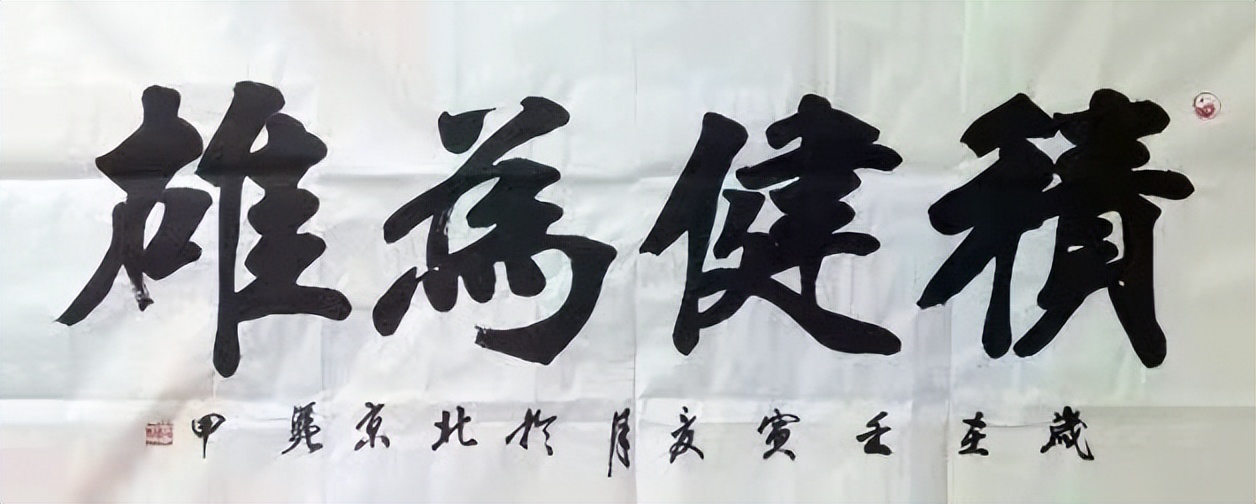 積健為雄
歲在壬寅夏月於北京甲